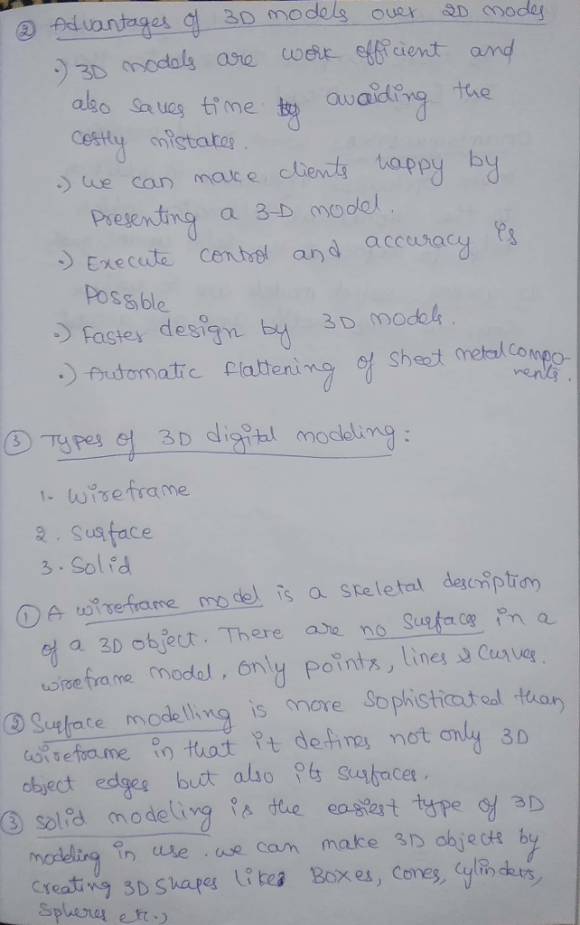 ② Advantages of 3D models over 2D modes
•) 3D models are work efficient and
also saves time by avoiding the
costly mistakes.
•) we can make clients happy by
Presenting a 3-D model.
•) Execute control and accuracy is
Possible
•) Faster design by 3D models.
•) Automatic flattening of sheet metal compo-
nents.
③ Types of 3D digital modeling:
1. wireframe
2. Surface
3. Solid
① A wireframe model is a skeletal description
of a 3D object. There are no surfaces in a
wireframe model, only points, lines & curves.
② Surface modelling is more sophisticated than
wireframe in that it defines not only 3D
object edges but also its surfaces.
③ solid modeling is the easiest type of 3D
modeling in use. we can make 3D objects by
creating 3D shapes like Boxes, cones, cylinders,
spheres etc.,